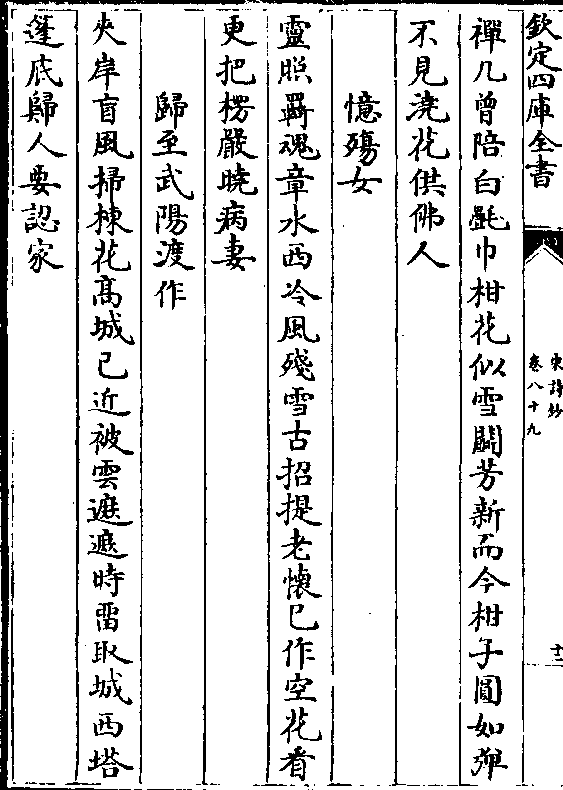 欽定四庫全書
宋詩鈔
卷八十九
十二
禪几曾陪白㲲巾柑花似雪鬭芳新而今柑子圓如彈
不見澆花供佛人
憶殤女
靈照羇魂章水西冷風殘雪古招提老懷已作空花看
更把楞嚴曉病妻
歸至武陽渡作
夾岸盲風掃楝花高城已近被雲遮遮時留取城西塔
篷底歸人要認家